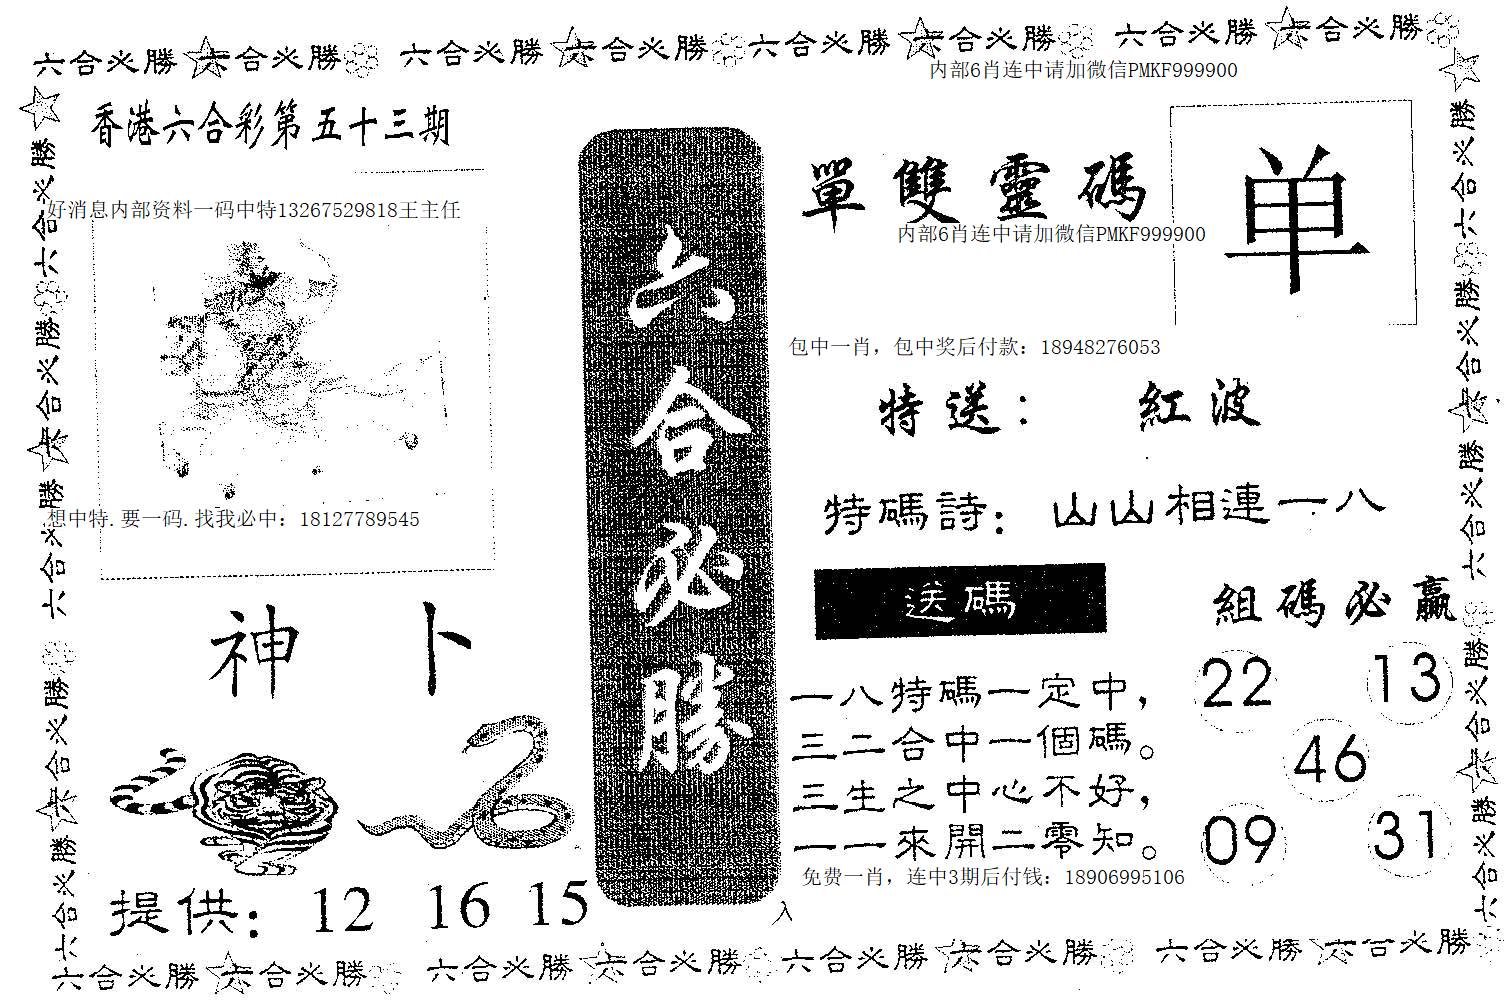 六合必勝 六合必勝 六合必勝 六合必勝 六合必勝 六合必勝 六合必勝 六合必勝
内部6肖连中请加微信PMKF999900
香港六合彩第五十三期
好消息内部资料一码中特13267529818王主任
想中特.要一码.找我必中：18127789545
神 卜
提供： 12 16 15
六合必勝
單雙靈碼
单
内部6肖连中请加微信PMKF999900
包中一肖，包中奖后付款：18948276053
特送： 紅波
特碼詩：山山相連一八
送碼
一八特碼一定中，
三二合中一個碼。
三生之中心不好，
一一來開二零知。
組碼必贏
22 13
46
09 31
免费一肖，连中3期后付钱：18906995106
入
六合必勝 六合必勝 六合必勝 六合必勝 六合必勝
六合必勝 六合必勝 六合必勝 六合必勝 六合必勝
六合必勝 六合必勝 六合必勝 六合必勝 六合必勝 六合必勝 六合必勝 六合必勝